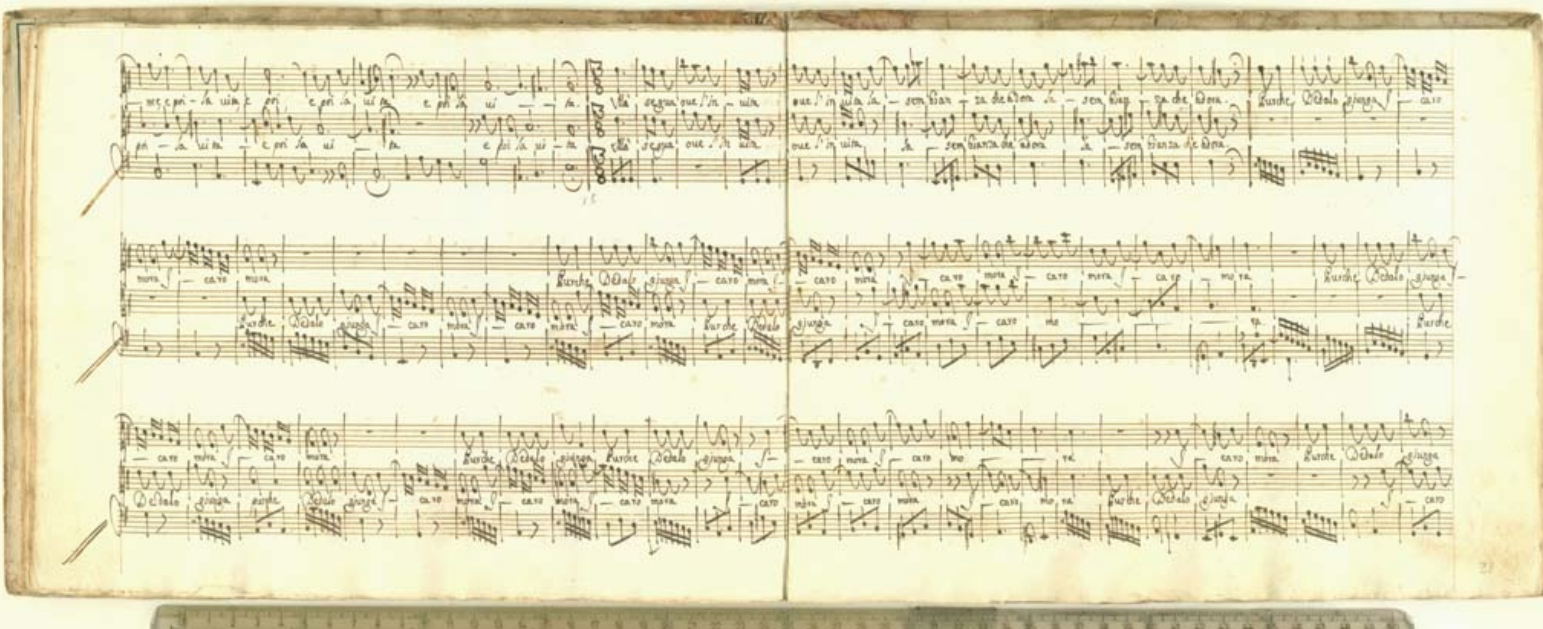 me e pri - sa vita e pri e pri sa vi ta e pri sa vi - - - ta. Alà segua oue s'in - uita oue s'in uita la - sem bian - za che adora la - sem bian - za che adora. Purche Dedalo giunga J - caro
pri - sa vi ta - e pri sa vi - ta e pri sa vi - ta Alà segua oue s'in uita oue s'in uita la sem bianza che adora la - sem bianza che adora
mora J - caro mora Purche Dedalo giunga J - caro mora J - caro mora J caro mora J - caro mora J - ca ro mo ra. Purche Dedalo giunga J -
Purche Dedalo giunga J - caro mora J - caro mora J - caro mora Purche Dedalo giunga J - caro mora J - caro mo - ra Purche
- caro mora J - caro mora Purche Dedalo giunga Purche Dedalo giunga J - - caro mora J - caro mo - ra J caro mora Purche Dedalo giunga
Dedalo giunga purche Dedalo giunga J - caro mora J - caro mora J - caro mora J - caro mora J - caro mora J - caro mo ra Purche Dedalo giunga J - caro
21